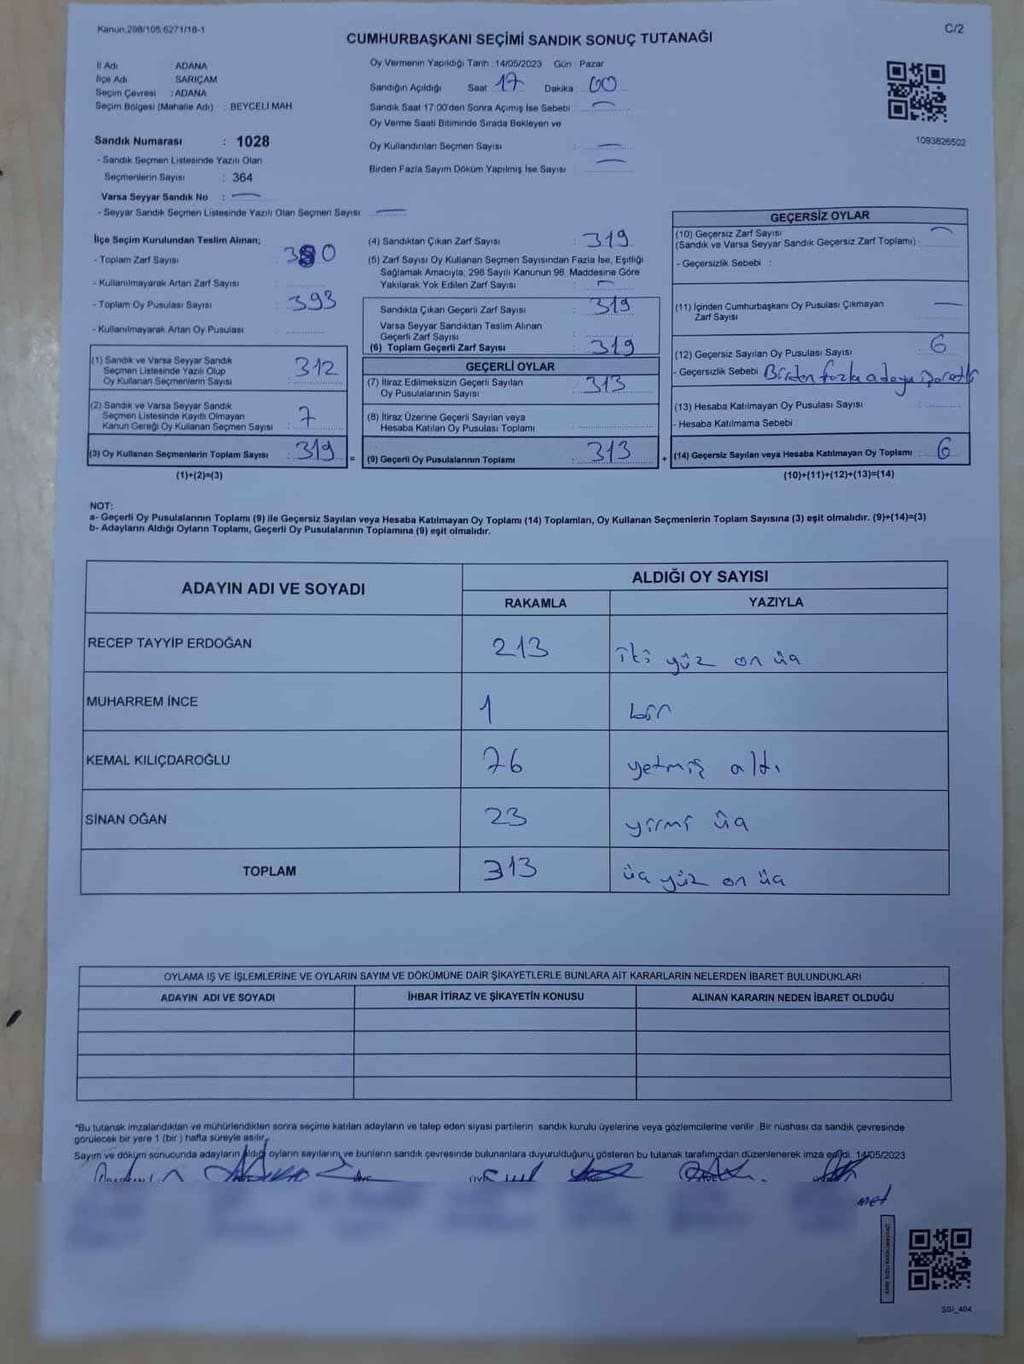 Kanun.298/105.6271/18-1
C/2
CUMHURBAŞKANI SEÇİMİ SANDIK SONUÇ TUTANAĞI
İl Adı : ADANA
İlçe Adı : SARIÇAM
Seçim Çevresi : ADANA
Seçim Bölgesi (Mahalle Adı) : BEYCELİ MAH
Oy Vermenin Yapıldığı Tarih : 14/05/2023 Gün : Pazar
Sandığın Açıldığı Saat 17 Dakika 00
Sandık Saat 17:00'den Sonra Açılmış İse Sebebi
Oy Verme Saati Bitiminde Sırada Bekleyen ve
Oy Kullandırılan Seçmen Sayısı
Birden Fazla Sayım Döküm Yapılmış İse Sayısı
1093826502
Sandık Numarası : 1028
- Sandık Seçmen Listesinde Yazılı Olan
Seçmenlerin Sayısı : 364
Varsa Seyyar Sandık No :
- Seyyar Sandık Seçmen Listesinde Yazılı Olan Seçmen Sayısı
İlçe Seçim Kurulundan Teslim Alınan;
- Toplam Zarf Sayısı
- Kullanılmayarak Artan Zarf Sayısı
- Toplam Oy Pusulası Sayısı : 393
- Kullanılmayarak Artan Oy Pusulası
(1) Sandık ve Varsa Seyyar Sandık
Seçmen Listesinde Yazılı Olup
Oy Kullanan Seçmenlerin Sayısı : 312
(2) Sandık ve Varsa Seyyar Sandık
Seçmen Listesinde Kayıtlı Olmayan
Kanun Gereği Oy Kullanan Seçmen Sayısı : 7
(3) Oy Kullanan Seçmenlerin Toplam Sayısı : 319 =
(1)+(2)=(3)
(4) Sandıktan Çıkan Zarf Sayısı : 319
(5) Zarf Sayısı Oy Kullanan Seçmen Sayısından Fazla İse, Eşitliği
Sağlamak Amacıyla; 298 Sayılı Kanunun 98. Maddesine Göre
Yakılarak Yok Edilen Zarf Sayısı :
Sandıkta Çıkan Geçerli Zarf Sayısı : 319
Varsa Seyyar Sandıktan Teslim Alınan
Geçerli Zarf Sayısı
(6) Toplam Geçerli Zarf Sayısı : 319
GEÇERLİ OYLAR
(7) İtiraz Edilmeksizin Geçerli Sayılan
Oy Pusulalarının Sayısı : 313
(8) İtiraz Üzerine Geçerli Sayılan veya
Hesaba Katılan Oy Pusulası Toplamı :
(9) Geçerli Oy Pusulalarının Toplamı : 313 +
GEÇERSİZ OYLAR
(10) Geçersiz Zarf Sayısı
(Sandık ve Varsa Seyyar Sandık Geçersiz Zarf Toplamı) :
- Geçersizlik Sebebi :
(11) İçinden Cumhurbaşkanı Oy Pusulası Çıkmayan
Zarf Sayısı
(12) Geçersiz Sayılan Oy Pusulası Sayısı : 6
- Geçersizlik Sebebi Birden fazla adaya işaretli
(13) Hesaba Katılmayan Oy Pusulası Sayısı :
- Hesaba Katılmama Sebebi :
(14) Geçersiz Sayılan veya Hesaba Katılmayan Oy Toplamı : 6
(10)+(11)+(12)+(13)=(14)
NOT:
a- Geçerli Oy Pusulalarının Toplamı (9) ile Geçersiz Sayılan veya Hesaba Katılmayan Oy Toplamı (14) Toplamları, Oy Kullanan Seçmenlerin Toplam Sayısına (3) eşit olmalıdır. (9)+(14)=(3)
b- Adayların Aldığı Oyların Toplamı, Geçerli Oy Pusulalarının Toplamına (9) eşit olmalıdır.
ADAYIN ADI VE SOYADI
ALDIĞI OY SAYISI
RAKAMLA YAZIYLA
RECEP TAYYİP ERDOĞAN 213 iki yüz on üç
MUHARREM İNCE 1 bir
KEMAL KILIÇDAROĞLU 76 yetmiş altı
SİNAN OĞAN 23 yirmi üç
TOPLAM 313 üç yüz on üç
OYLAMA İŞ VE İŞLEMLERİNE VE OYLARIN SAYIM VE DÖKÜMÜNE DAİR ŞİKAYETLERLE BUNLARA AİT KARARLARIN NELERDEN İBARET BULUNDUKLARI
ADAYIN ADI VE SOYADI İHBAR İTİRAZ VE ŞİKAYETİN KONUSU ALINAN KARARIN NEDEN İBARET OLDUĞU
*Bu tutanak imzalandıktan ve mühürlendikten sonra seçime katılan adayların ve talep eden siyasi partilerin sandık kurulu üyelerine veya gözlemcilerine verilir. Bir nüshası da sandık çevresinde
görülecek bir yere 1 (bir ) hafta süreyle asılır.
Sayım ve döküm sonucunda adayların aldığı oyların sayılarını ve bunların sandık çevresinde bulunanlara duyurulduğunu gösteren bu tutanak tarafımızdan düzenlenerek imza edildi. 14/05/2023
met
SSI_404